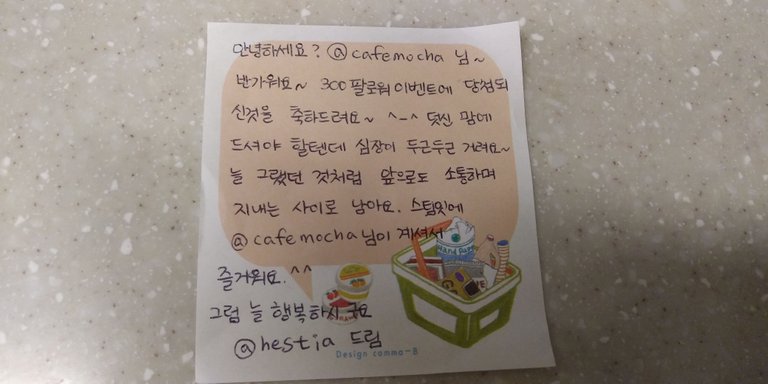 안녕하세요? @cafemocha 님~
반가워요~ 300팔로워이벤트에 당첨되
신것을 축하드려요~ ^-^ 덧신 맘에
드셔야 할텐데 심장이 두근두근 거려요~
늘 그랬던 것처럼 앞으로도 소통하며
지내는 사이로 남아요. 스팀잇에
@cafemocha님이 계셔서
즐거워요.^^
그럼 늘 행복하시구요
@hestia 드림
Design comma-B